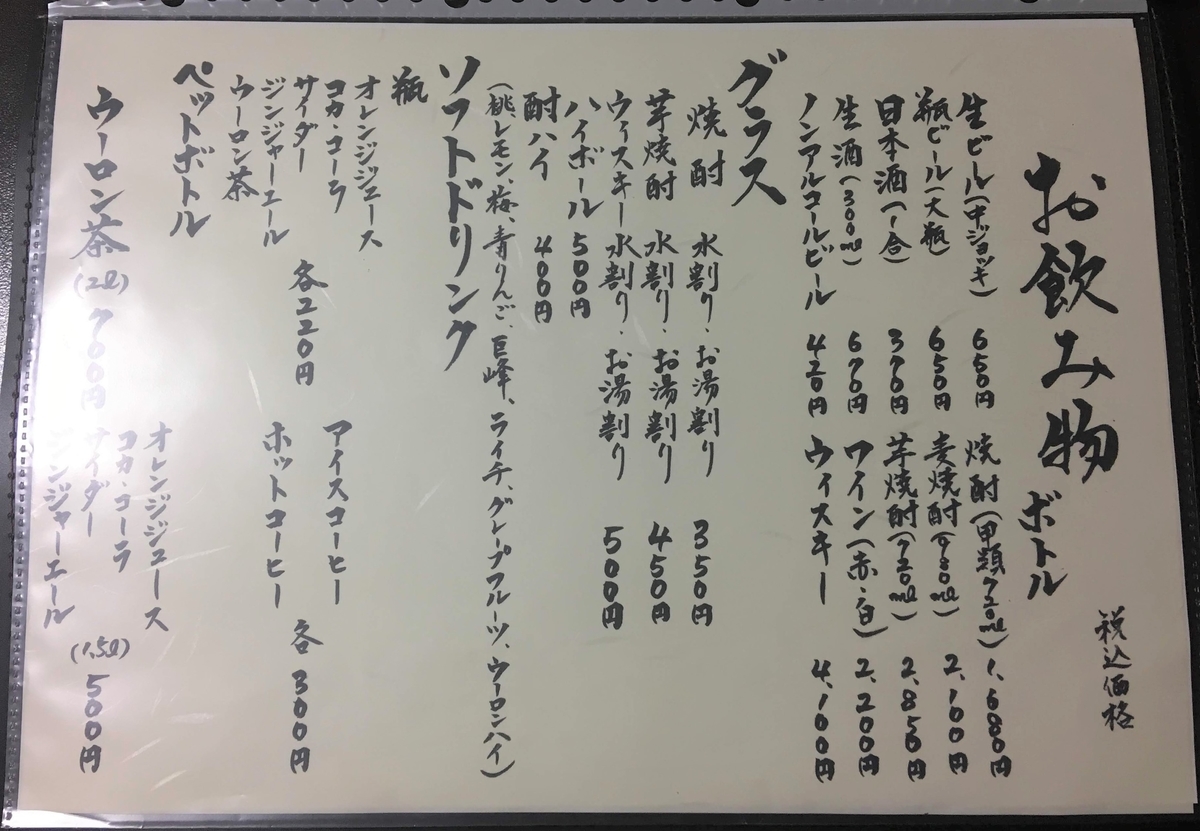 お飲み物
税込価格
生ビール(中ジョッキ) 650円
瓶ビール(大瓶) 650円
日本酒(一合) 370円
生酒(300ml) 670円
ノンアルコールビール 420円
ボトル
焼酎(甲類720ml) 1,680円
麦焼酎(780ml) 2,100円
芋焼酎(720ml) 2,850円
ワイン(赤・白) 2,200円
ウィスキー 4,100円
グラス
焼酎 水割り・お湯割り 350円
芋焼酎 水割り・お湯割り 450円
ウィスキー 水割り・お湯割り 500円
ハイボール 500円
酎ハイ 400円
(桃、レモン、梅、青りんご、巨峰、ライチ、グレープフルーツ、ウーロンハイ)
ソフトドリンク
瓶
オレンジジュース
コカ・コーラ
サイダー
ジンジャーエール
ウーロン茶
各220円
アイスコーヒー
ホットコーヒー
各300円
ペットボトル
ウーロン茶(2l) 700円
オレンジジュース
コカ・コーラ
サイダー
ジンジャーエール
(1,5l) 500円